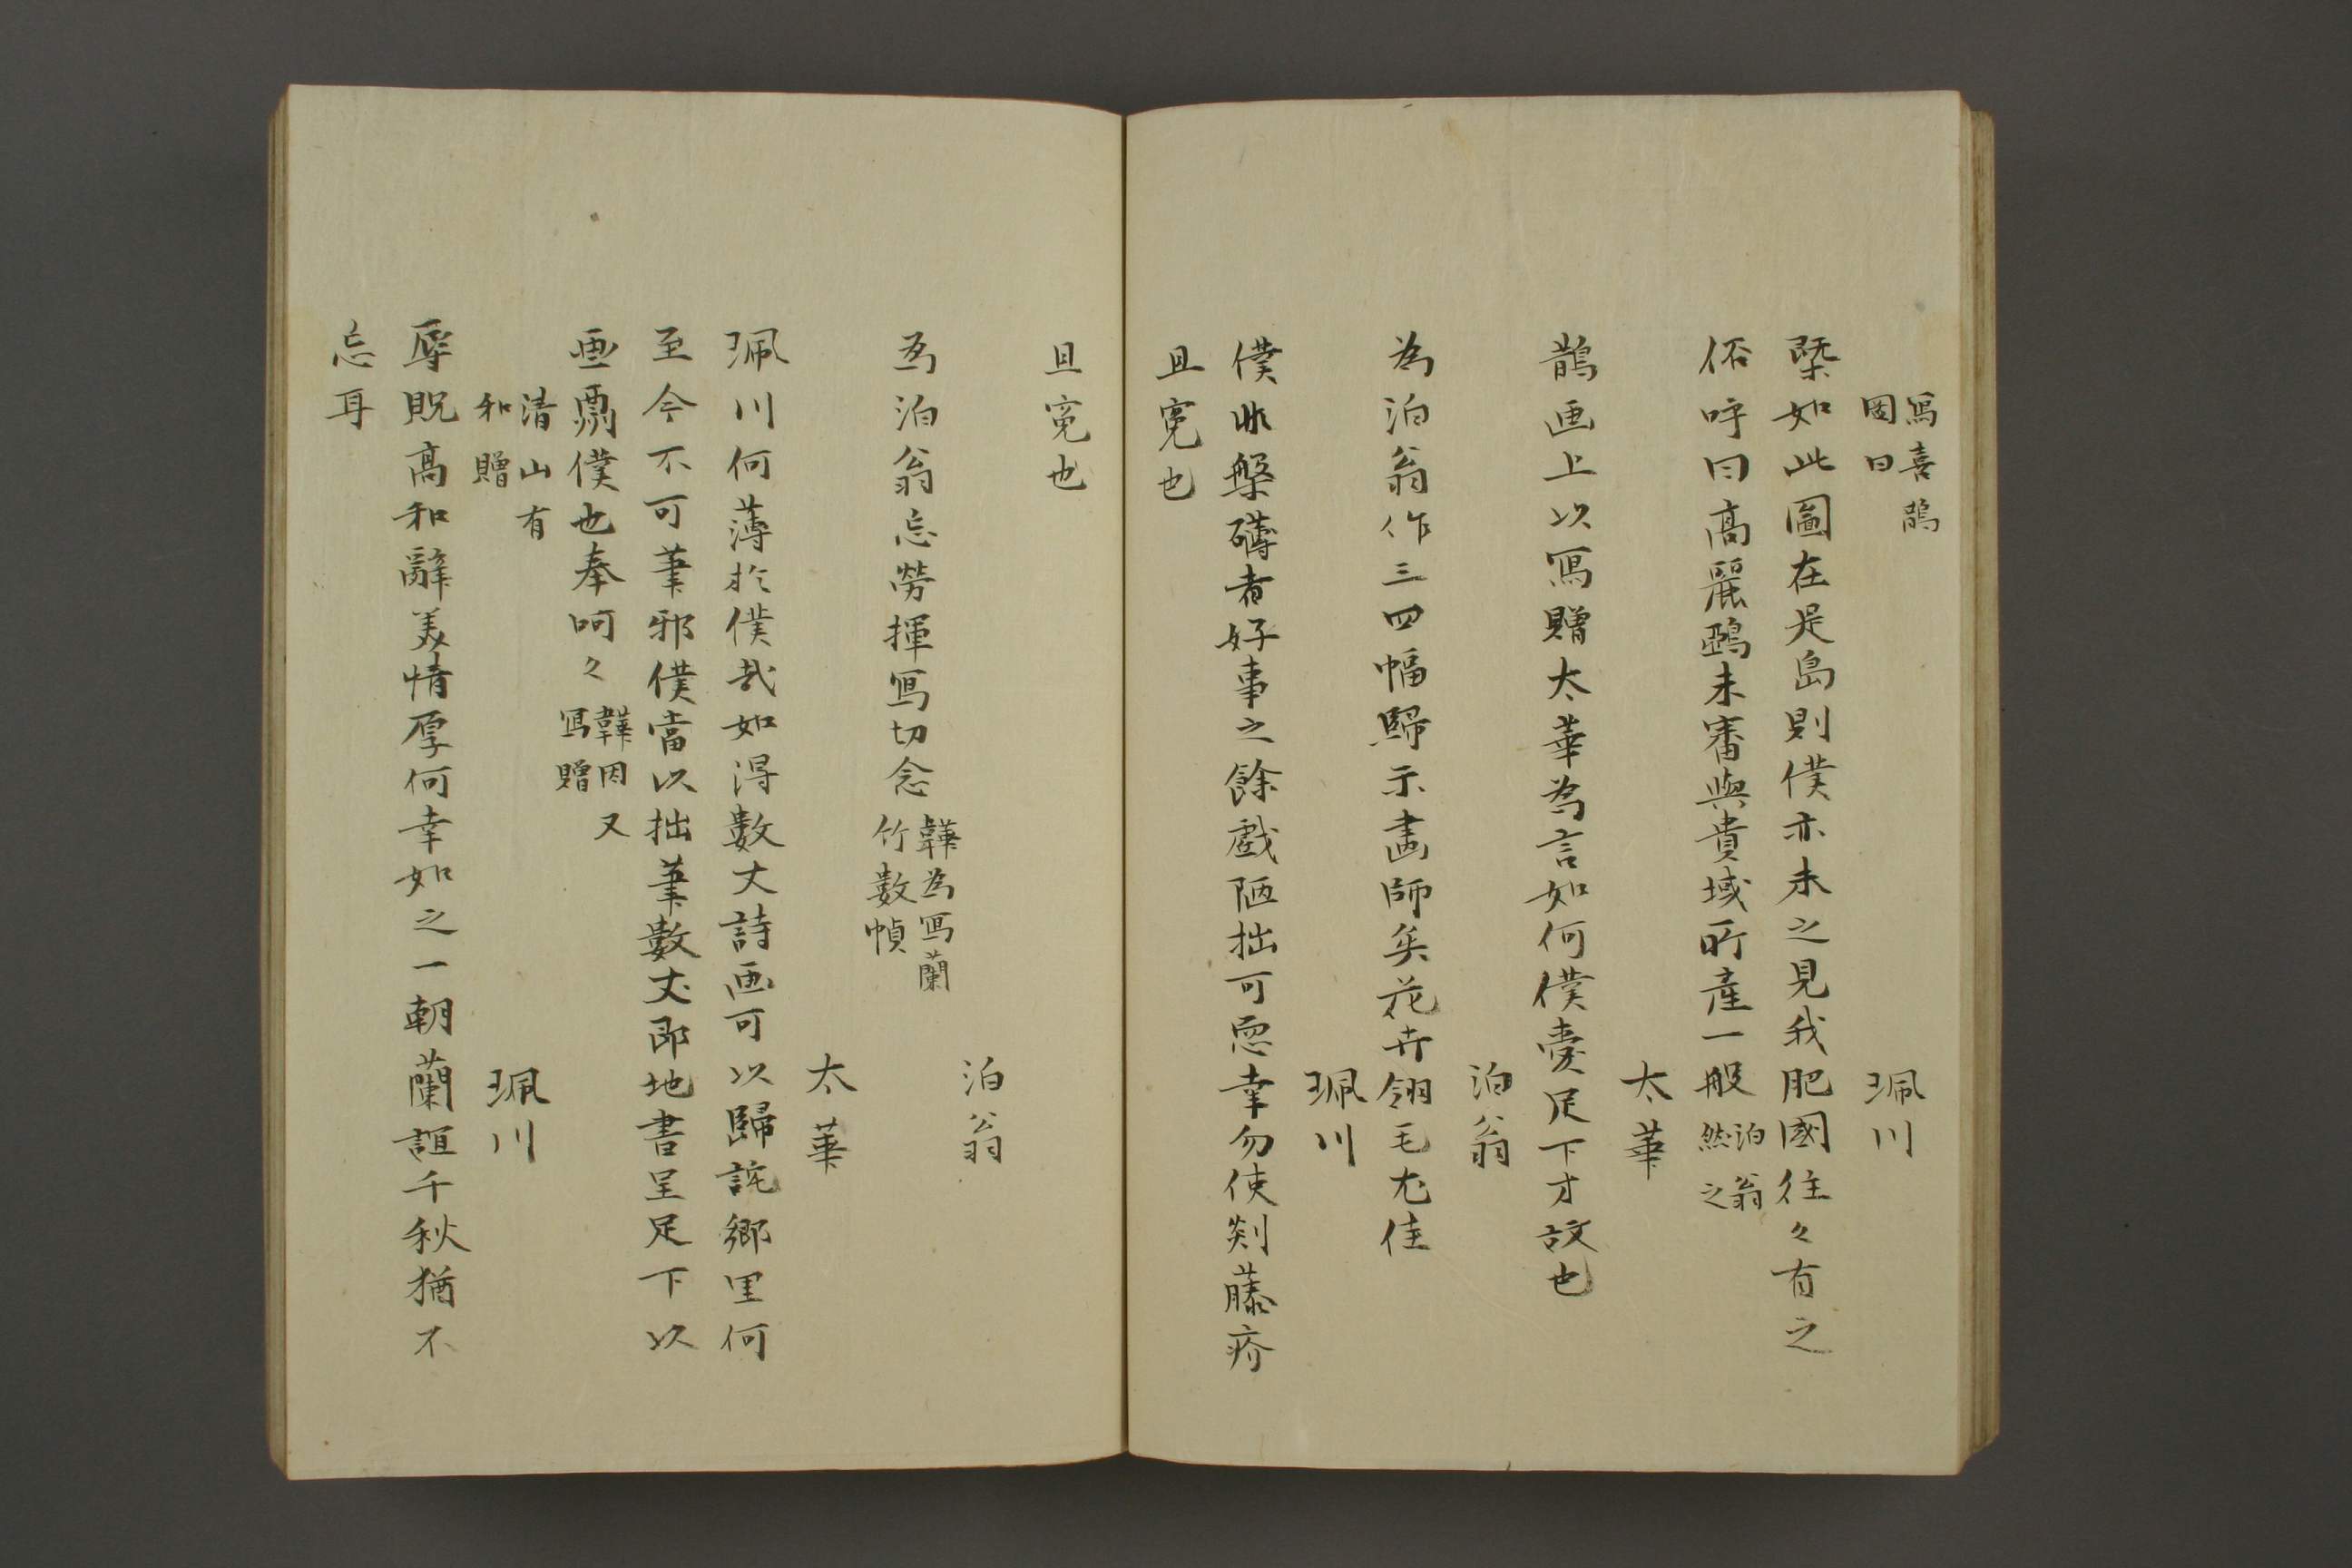 寫喜鵲 珮川
圖曰
槩如此圖在是島則僕亦未之見我肥國往々有之
俗呼曰高麗鵶未審與貴域所產一般 泊翁
然之
太華
鵲画上以寫贈太華為言如何僕愛足下才故也
泊翁
為泊翁作三四幅歸示畫師矣花卉翎毛尤佳
珮川
僕非槃礴者好事之餘戲陋拙可恧幸勿使剡藤疥
且寃也
且寃也
泊翁
为泊翁忘勞揮寫切念 韡為寫蘭
竹數幀
太華
珮川何薄於僕哉如得數丈詩画可以歸詫鄉里何
至今不可筆邪僕當以拙筆數丈即地書呈足下以
画鬻僕也奉呵々 韡因又
寫贈
清山有 珮川
和贈
辱貺高和辭美情厚何幸如之一朝蘭誼千秋猶不
忘耳